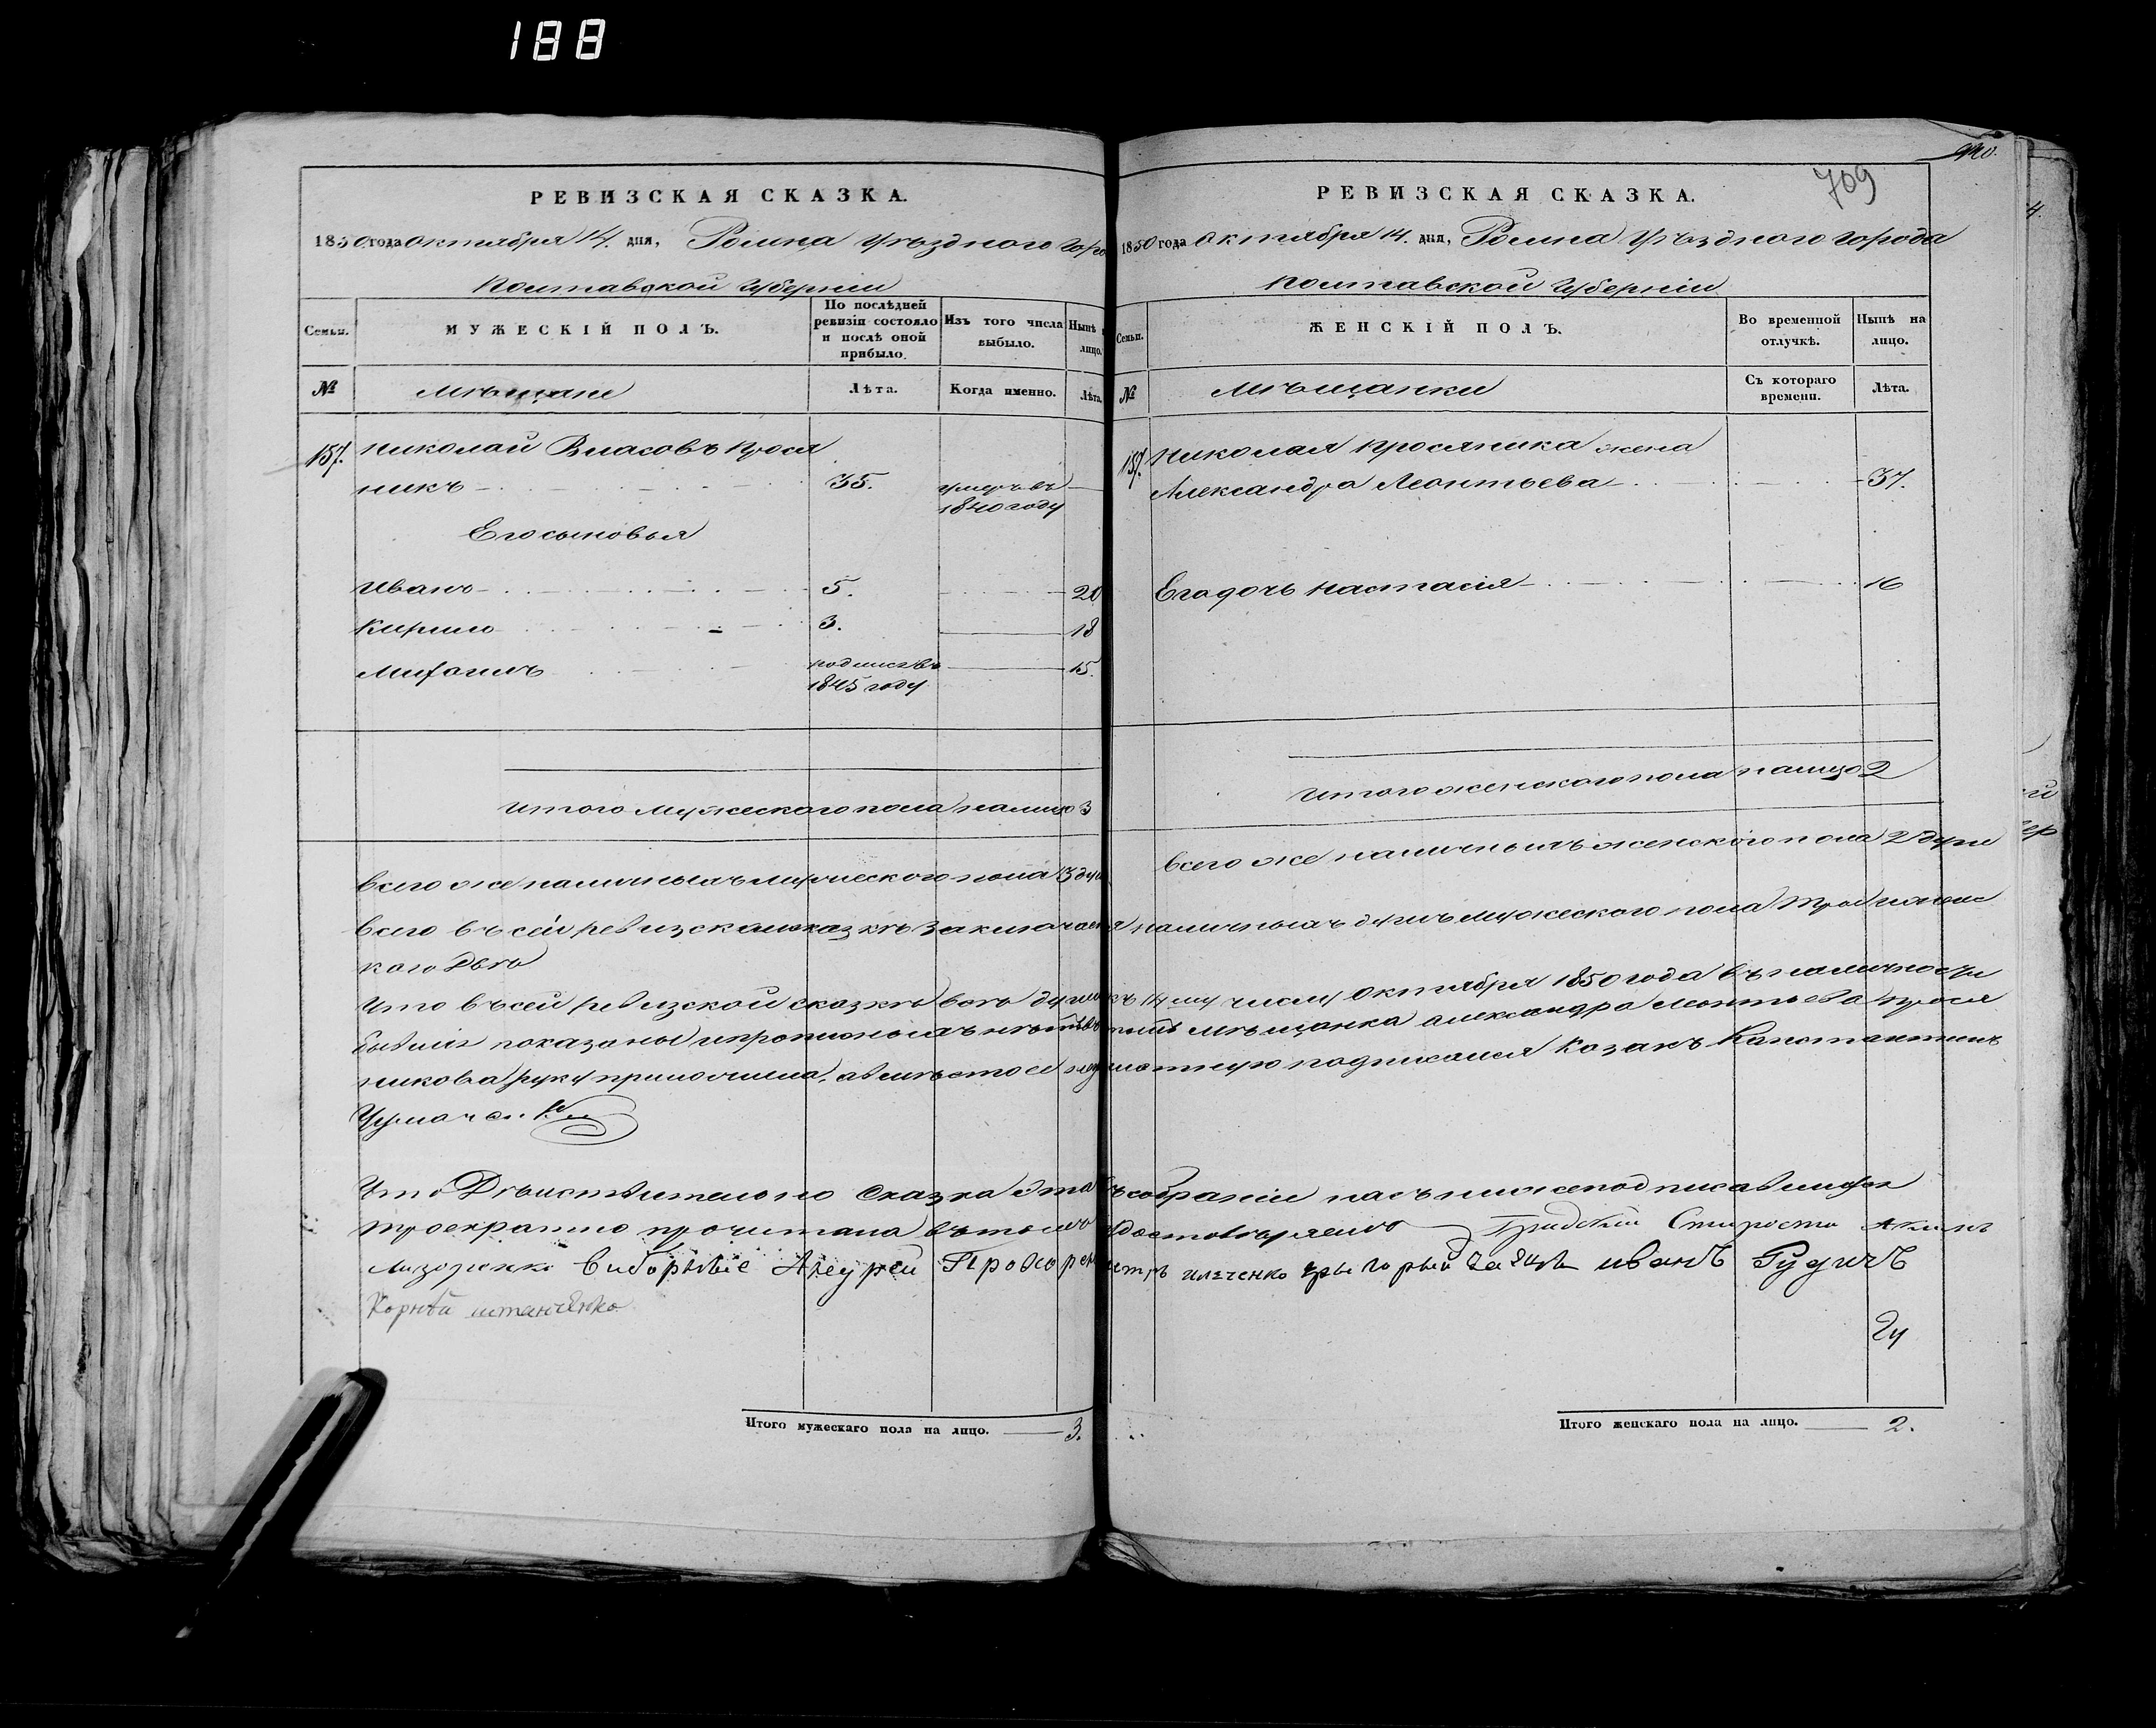 188
РЕВИЗСКАЯ СКАЗКА.
1850 года Октября 14. дня, Ромна Уѣзднаго Горо
Полтавской Губерніи
Семьи.
МУЖЕСКІЙ ПОЛЪ.
По послѣдней ревизіи состояло и послѣ оной прибыло.
Изъ того числа выбыло.
Нынѣ лицо.
№
Мѣщане
Лѣта.
Когда именно.
Лѣта.
157. Николай Власовъ Прося
никъ 35. умеръ въ
1840 году
Его сыновья
Иванъ 5. 20
Кирило 3. 18
Михаилъ родился въ 15.
1845 году
Итого мужескаго пола налицо 3
Всего же наличныхъ мужескаго пола 3 ду
РЕВИЗСКАЯ СКАЗКА.
709
1850 года Октября 14. дня, Ромна Уѣзднаго Города
Полтавской Губерніи
Семьи.
ЖЕНСКІЙ ПОЛЪ.
Во временной отлучкѣ.
Нынѣ на лицо.
№
Мѣщанки
Съ котораго времени.
Лѣта.
157. Николая Просяника жена
Александра Леонтьева 37.
Его дочь Настасія 16
Итого женского пола налицо 2
Всего же наличныхъ женского пола 2 души
Всего въ сей ревизской сказкѣ заключается наличныхъ душъ мужеского пола три и женс
кого двѣ
Что въ сей ревизской сказкѣ всѣ души къ 14му числу Октября 1850 года въ наличности
бывшіе показаны и прописныхъ нѣтъ въ томъ мѣщанка Александра Леонтьева Прося
никова руку приложила, а вмѣсто ее неграмотную подписался Козакъ Константинъ
Чумаченко
Что Дѣйствительно Сказка эта въ собраніи насъ нижеподписавшихся
троекратно прочитана въ томъ удостовѣряемъ Градскій Староста Акимъ
виборніе Прохорен илченко иванъ Рудичъ
Корнѣй
Итого мужескаго пола на лицо. 3.
Итого женскаго пола на лицо. 2.